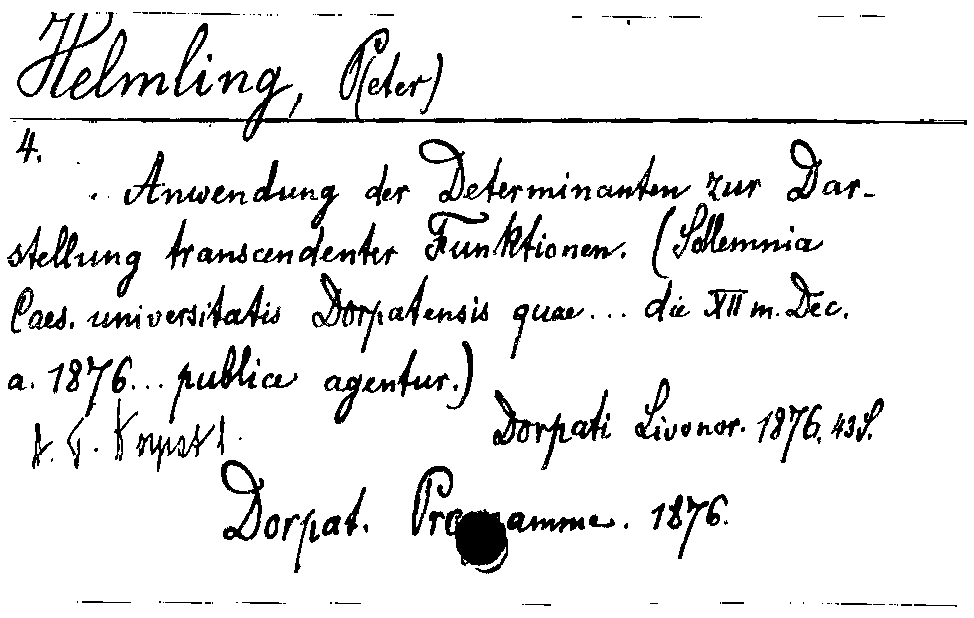 Helmling, P(eter)
4.
Anwendung der Determinanten zur Dar-
stellung transcendenter Funktionen. (Sollemnia
Caes. universitatis Dorpatensis quae... die XII m. Dec.
a. 1876... publice agentur.)
Dorpati Livonor. 1876. 43 S.
Dorpat. Programme. 1876.